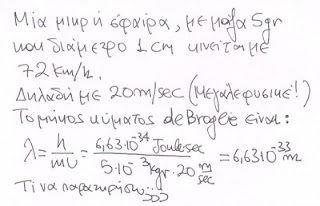 Μία μικρή σφαίρα, με μάζα 5gr
και διάμετρο 1cm κινείται με
72 Km/h.
Δηλαδή με 20m/sec (Μεγαλεφυσικέ!)
Το μήκος κύματος de Broglie είναι:
λ = h/mυ = 6,63·10⁻³⁴ Joule·sec / 5·10⁻³kgr·20 m/sec = 6,63·10⁻³³ m
Τί να παρατηρήσω;;;